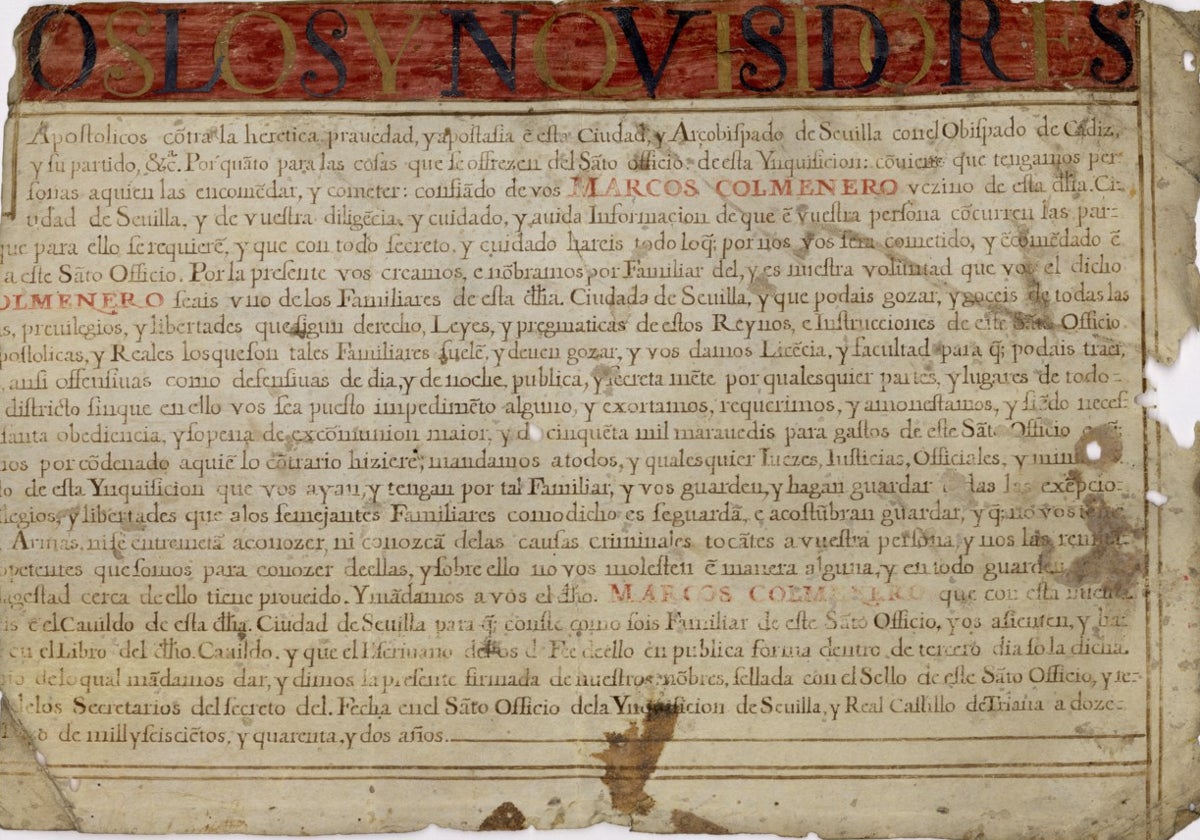 OS LOS YNQVISIDORES
Apostolicos cõtra la heretica prauedad, y apostasia ẽ esta Ciudad, y Arçobispado de Seuilla con el Obispado de Cadiz,
y su partido, &cª. Por quãto para las cosas que se offrezen del Sãto officio: de esta Ynquisicion: cõuiene que tengamos per-
sonas a quien las encomẽdar, y cometer: confiãdo de vos MARCOS COLMENERO vezino de esta dha. Ci-
udad de Seuilla, y de vuestra diligẽcia, y cuidado, y auida Informacion de que ẽ vuestra persona cõcurren las par-
que para ello se requierẽ, y que con todo secreto, y cuidado hareis todo lo q̃ por nos vos sera cometido, y ẽcomẽdado ẽ
a este Sãto Officio. Por la presente vos creamos, e nõbramos por Familiar del, y es nuestra voluntad que vos el dicho
OLMENERO seais vno de los Familiares de esta dha. Ciudad de Seuilla, y que podais gozar, y goceis de todas las
s, preuilegios, y libertades que sigun derecho, Leyes, y pregmaticas de estos Reynos, e Instrucciones de este Sãto Officio
postolicas, y Reales los que son tales Familiares suelẽ, y deuen gozar, y vos damos Licẽcia, y facultad para q̃ podais traer,
ansi offensiuas como defensiuas de dia, y de noche, publica, y secreta mẽte por qualesquier partes, y lugares de todo-
districto sin que en ello vos sea puesto impedimẽto alguno, y exortamos, requerimos, y amonestamos, y siẽdo neces-
santa obediencia, y so pena de excõmunion maior, y de cinquẽta mil marauedis para gastos de este Sãto Officio
mos por cõdenado a quiẽ lo cõtrario hiziere, mandamos a todos, y qualesquier Iuezes, Iusticias, Officiales, y min
do de esta Ynquisicion que vos ayan, y tengan por tal Familiar, y vos guarden, y hagan guardar todas las exẽpcio-
ilegios, y libertades que a los semejantes Familiares como dicho es se guardã, e acostũbran guardar, y q̃ no vos tome
Armas, ni se entremetã a conozer, ni conozcã de las causas criminales tocãtes a vuestra persona, y nos las remita-
opetentes que somos para conozer de ellas, y sobre ello no vos molesten ẽ manera alguna, y en todo guarden
Magestad cerca de ello tiene proueido. Y mãdamos a vos el dho. MARCOS COLMENERO que con esta nuestra
is ẽ el Cauildo de esta dha. Ciudad de Seuilla para q̃ conste como sois Familiar de este Sãto Officio, y os asienten, y ha-
en el Libro del dho. Cauildo. y que el Escriuano de Fee de ello en publica forma dentro de tercero dia so la dicha.
de lo qual mãdamos dar, y dimos la presente firmada de nuestros nõbres, sellada con el Sello de este Sãto Officio, y re-
delos Secretarios del secreto del. Fecha en el Sãto Officio de la Ynquisicion de Seuilla, y Real Castillo de Triana a doze-
de mill y seiscieẽtos, y quarenta, y dos años.